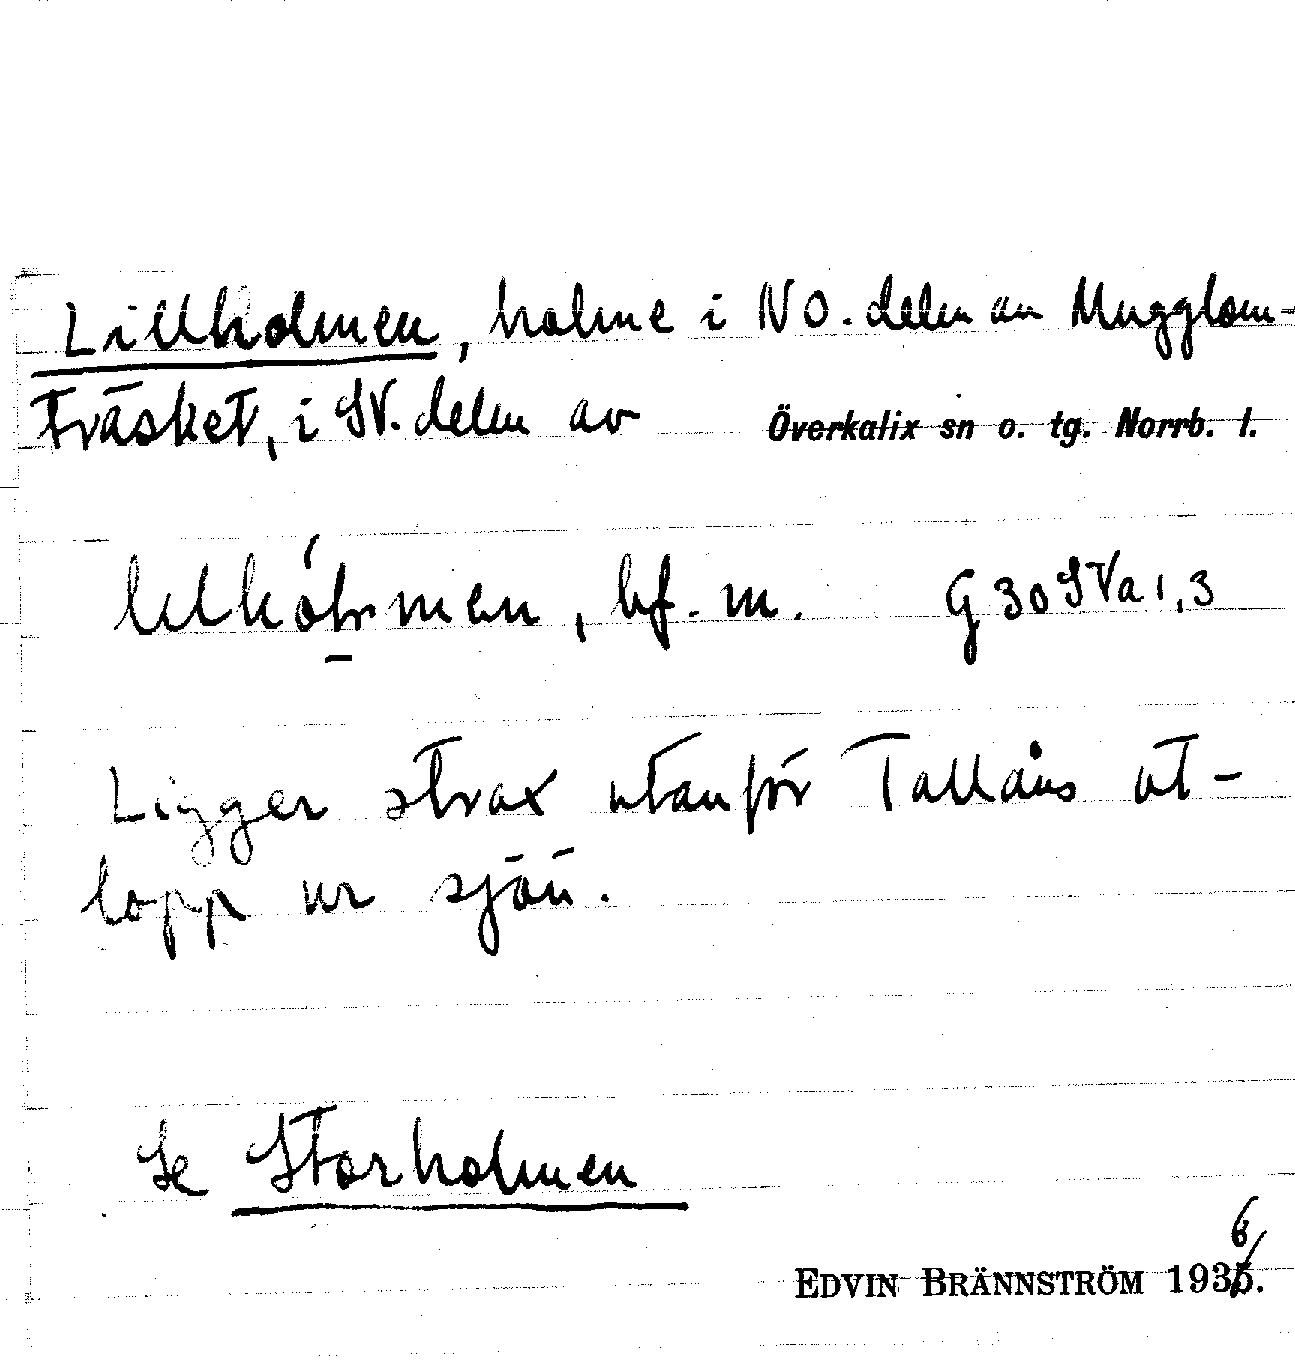 Lillholmen, holme i NO. delen av Mugglom-
träsket, i SV. delen av Överkalix sn o. tg. Norrb. l.
bf. m. G 30 SVa 1,3
Ligger strax utanför Tallåns ut-
lopp ur sjön.
Se Storholmen
6
EDVIN BRÄNNSTRÖM 1935.